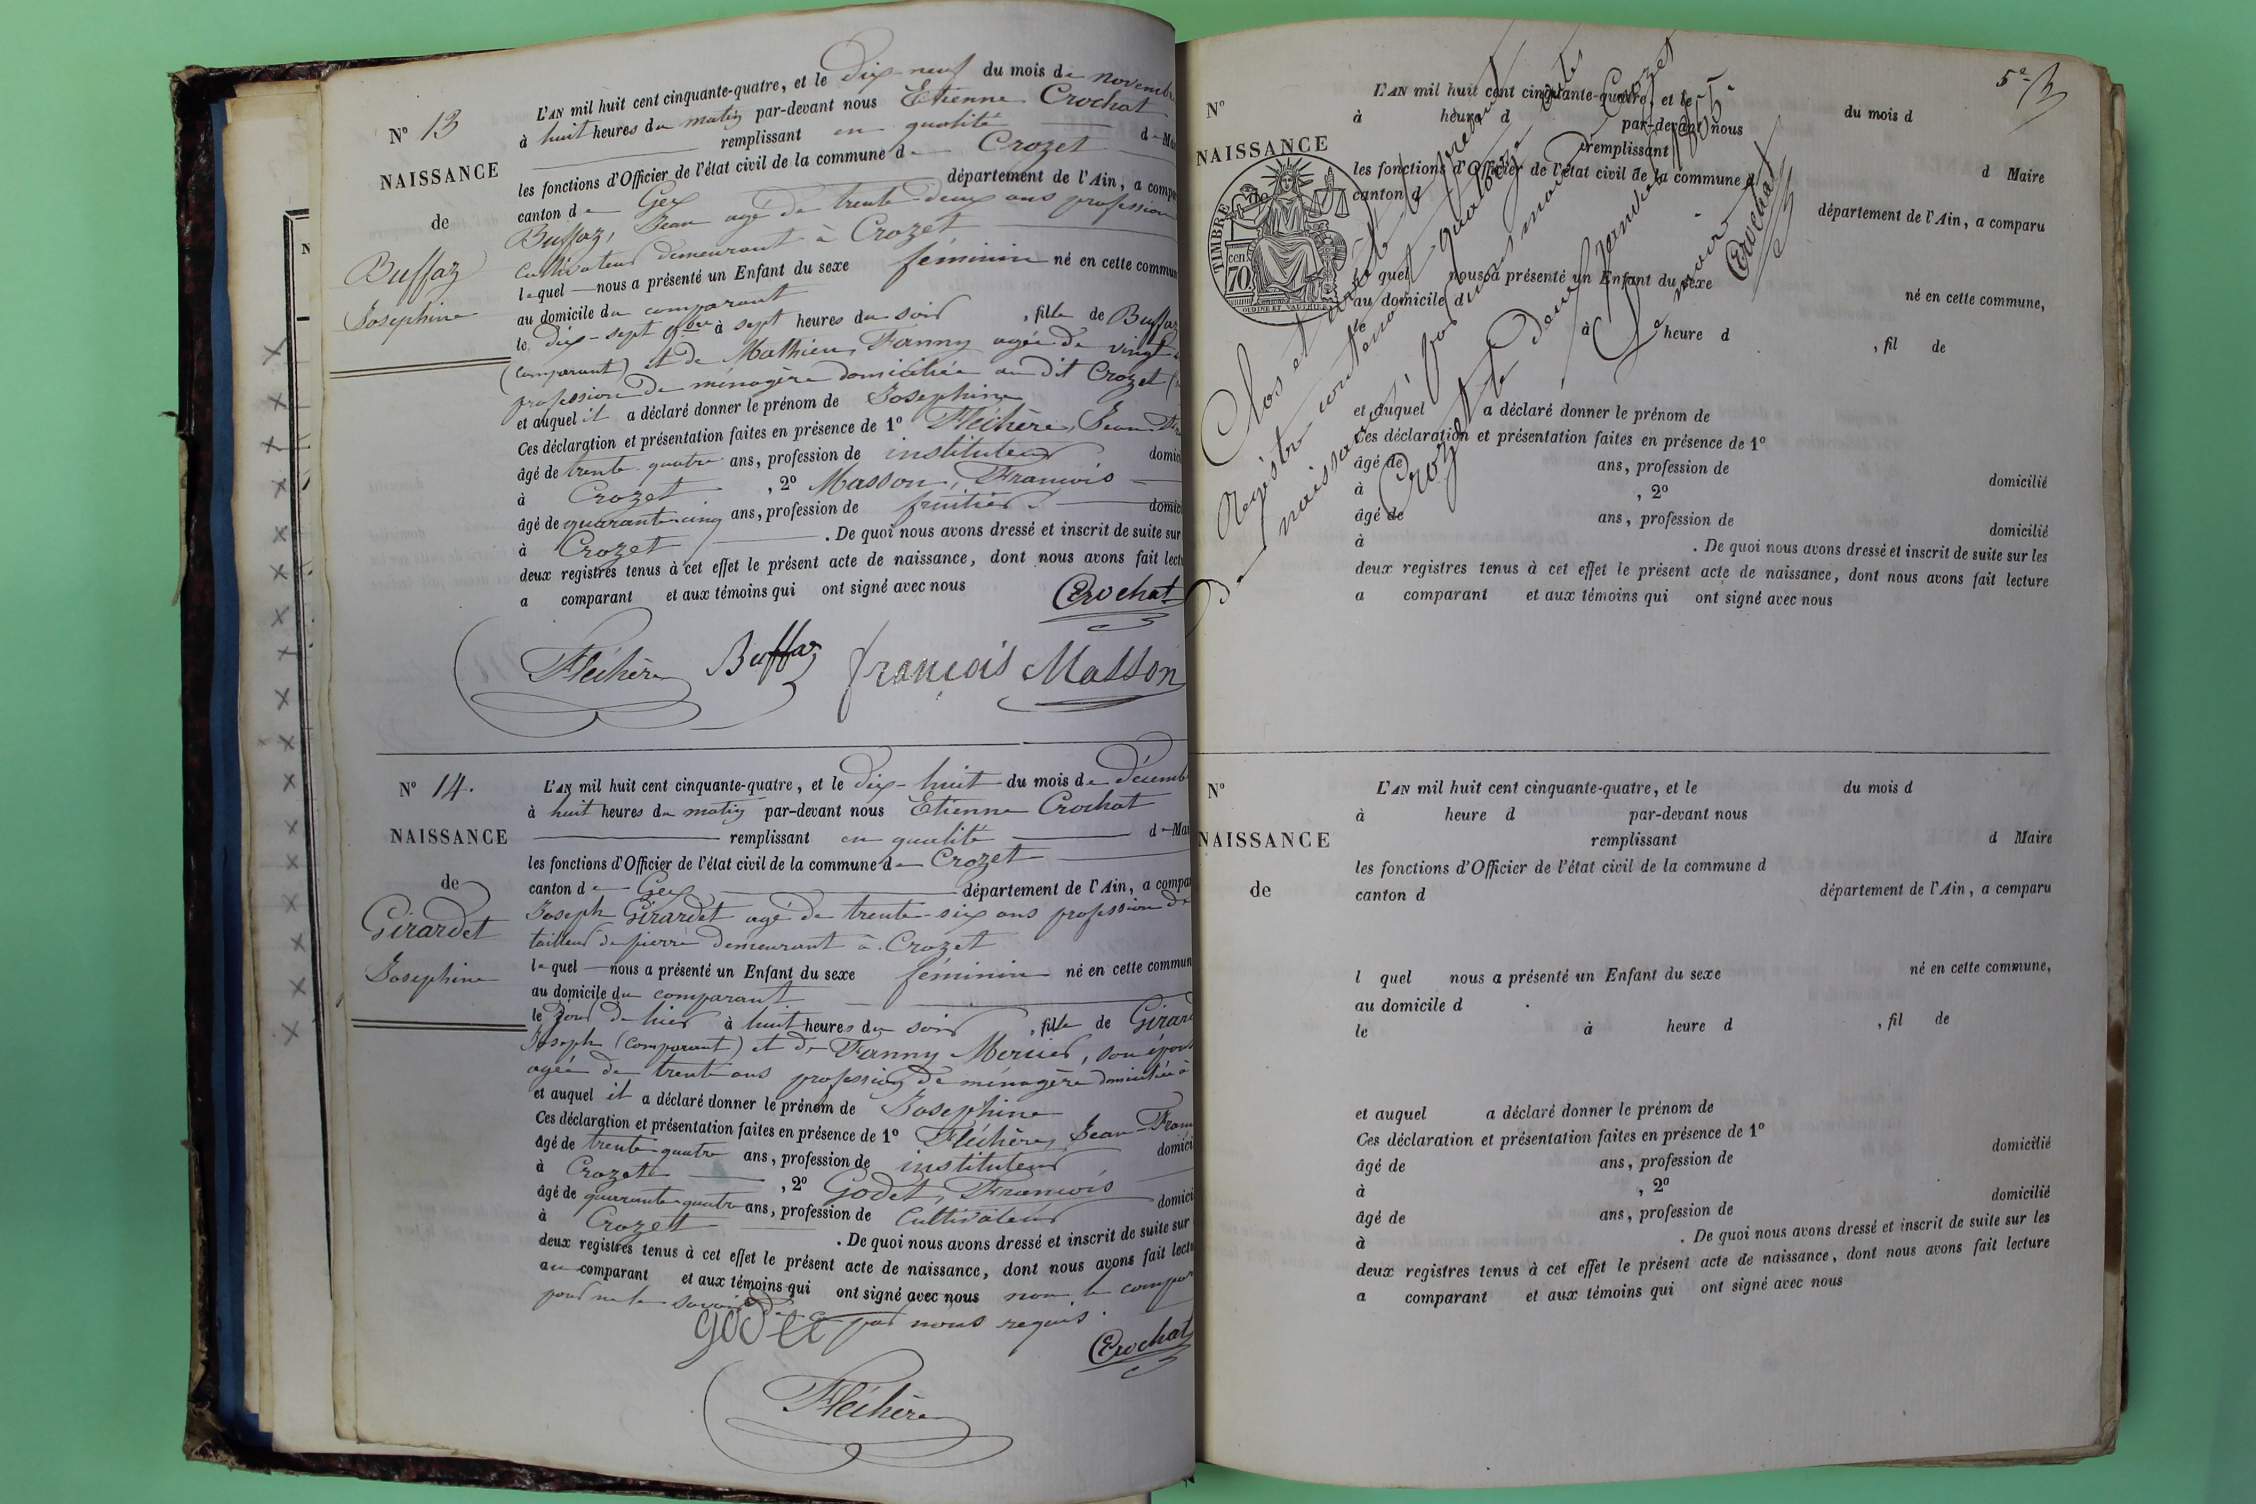 N° 13
NAISSANCE
de
Buffaz
Josephine
L'AN mil huit cent cinquante-quatre, et le dix-neuf du mois de novembre
à huit heures du matin par-devant nous Etienne Crochat
remplissant en qualité de Mai
les fonctions d'Officier de l'état civil de la commune de Crozet
canton de Gex département de l'Ain, a compa
Buffaz, Jean agé de trente deux ans profession
cultivateur demeurant à Crozet
lequel nous a présenté un Enfant du sexe féminin né en cette commun
au domicile du comparant
le dix-sept 9bre à sept heures du soir, fille de Buffaz
(comparant) et de Mathieu, Fanny agée de vingt
profession de ménagère domiciliée au dit Crozet
et auquel il a déclaré donner le prénom de Josephine
Ces déclaration et présentation faites en présence de 1° Fléchère, Jean
âgé de trente-quatre ans, profession de instituteur domici
à Crozet, 2° Masson, François
âgé de quarante-cinq ans, profession de fruitier domici
à Crozet. De quoi nous avons dressé et inscrit de suite sur
deux registres tenus à cet effet le présent acte de naissance, dont nous avons fait lect
a comparant et aux témoins qui ont signé avec nous
Crochat
Fléchère Buffaz françois Masson
N° 14.
NAISSANCE
de
Girardet
Josephine
L'AN mil huit cent cinquante-quatre, et le dix-huit du mois de décemb
à huit heures du matin par-devant nous Etienne Crochat
remplissant en qualité de Mai
les fonctions d'Officier de l'état civil de la commune de Crozet
canton de Gex département de l'Ain, a compa
Joseph Girardet agé de trente-six ans profession de
tailleur de pierre demeurant à Crozet
lequel nous a présenté un Enfant du sexe féminin né en cette commun
au domicile du comparant
le jour de hier à huit heures du soir, fille de Girard
Joseph (comparant) et de Fanny Mercier, son épou
agée de trente ans profession de ménagère domiciliée à
et auquel il a déclaré donner le prénom de Josephine
Ces déclaration et présentation faites en présence de 1° Fléchère, Jean-Fran
âgé de trente-quatre ans, profession de instituteur domici
à Crozet, 2° Godet, François
âgé de quarante-quatre ans, profession de cultivateur domici
à Crozet. De quoi nous avons dressé et inscrit de suite sur
deux registres tenus à cet effet le présent acte de naissance, dont nous avons fait lect
au comparant et aux témoins qui ont signé avec nous non le compar
pour ne le savoir de ce par nous requis.
godet
Crochat
Fléchère
5e
N°
NAISSANCE
TIMBRE
70
cent
L'AN mil huit cent cinquante-quatre, et le du mois d
à heure d par-devant nous
remplissant d Maire
les fonctions d'Officier de l'état civil de la commune d
canton d département de l'Ain, a comparu
quel nous a présenté un Enfant du sexe né en cette commune,
au domicile d
le à heure d, fil de
et auquel a déclaré donner le prénom de
Ces déclaration et présentation faites en présence de 1°
âgé de ans, profession de domicilié
à, 2°
âgé de ans, profession de domicilié
à. De quoi nous avons dressé et inscrit de suite sur les
deux registres tenus à cet effet le présent acte de naissance, dont nous avons fait lecture
a comparant et aux témoins qui ont signé avec nous
Clos et arrêté le présent
Registre contenant quatorze actes
de naissances, par nous maire de Crozet
Crozet le deux janvier 1855
Le maire
Crochat
N°
NAISSANCE
de
L'AN mil huit cent cinquante-quatre, et le du mois d
à heure d par-devant nous
remplissant d Maire
les fonctions d'Officier de l'état civil de la commune d
canton d département de l'Ain, a comparu
l quel nous a présenté un Enfant du sexe né en cette commune,
au domicile d
le à heure d, fil de
et auquel a déclaré donner le prénom de
Ces déclaration et présentation faites en présence de 1°
âgé de ans, profession de domicilié
à, 2°
âgé de ans, profession de domicilié
à. De quoi nous avons dressé et inscrit de suite sur les
deux registres tenus à cet effet le présent acte de naissance, dont nous avons fait lecture
a comparant et aux témoins qui ont signé avec nous